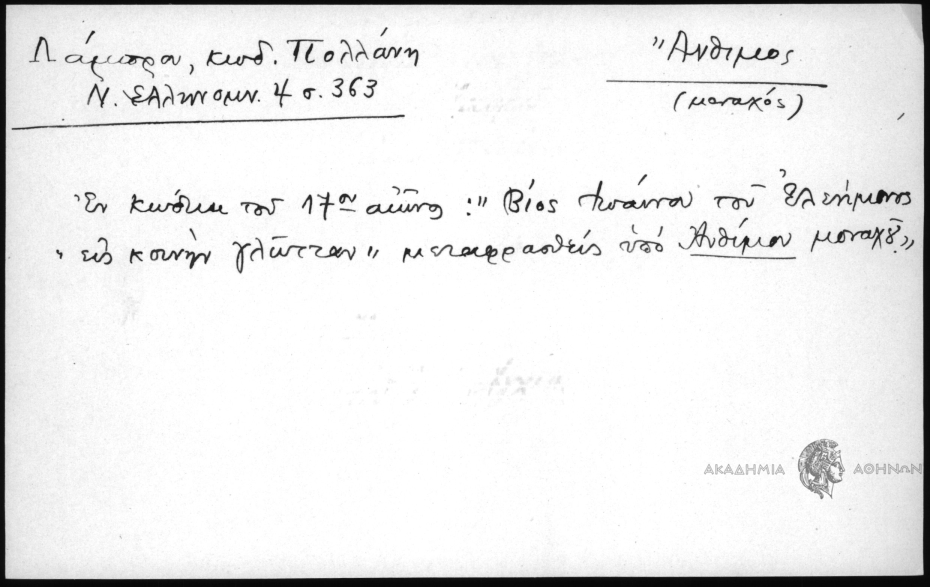 Λάμπρου, κωδ. Πολλάνη
Ν. Ἑλληνομν. 4 σ. 363
Ἄνθιμος
(μοναχός)
Ἐν κώδικι τοῦ 17ου αἰῶνος : " Βίος Ἰωάννου τοῦ Ἐλεήμονος
" εἰς κοινὴν γλῶτταν " μεταφρασθείς ὑπό Ἀνθίμου μοναχοῦ "
ΑΚΑΔΗΜΙΑ ΑΘΗΝΩΝ